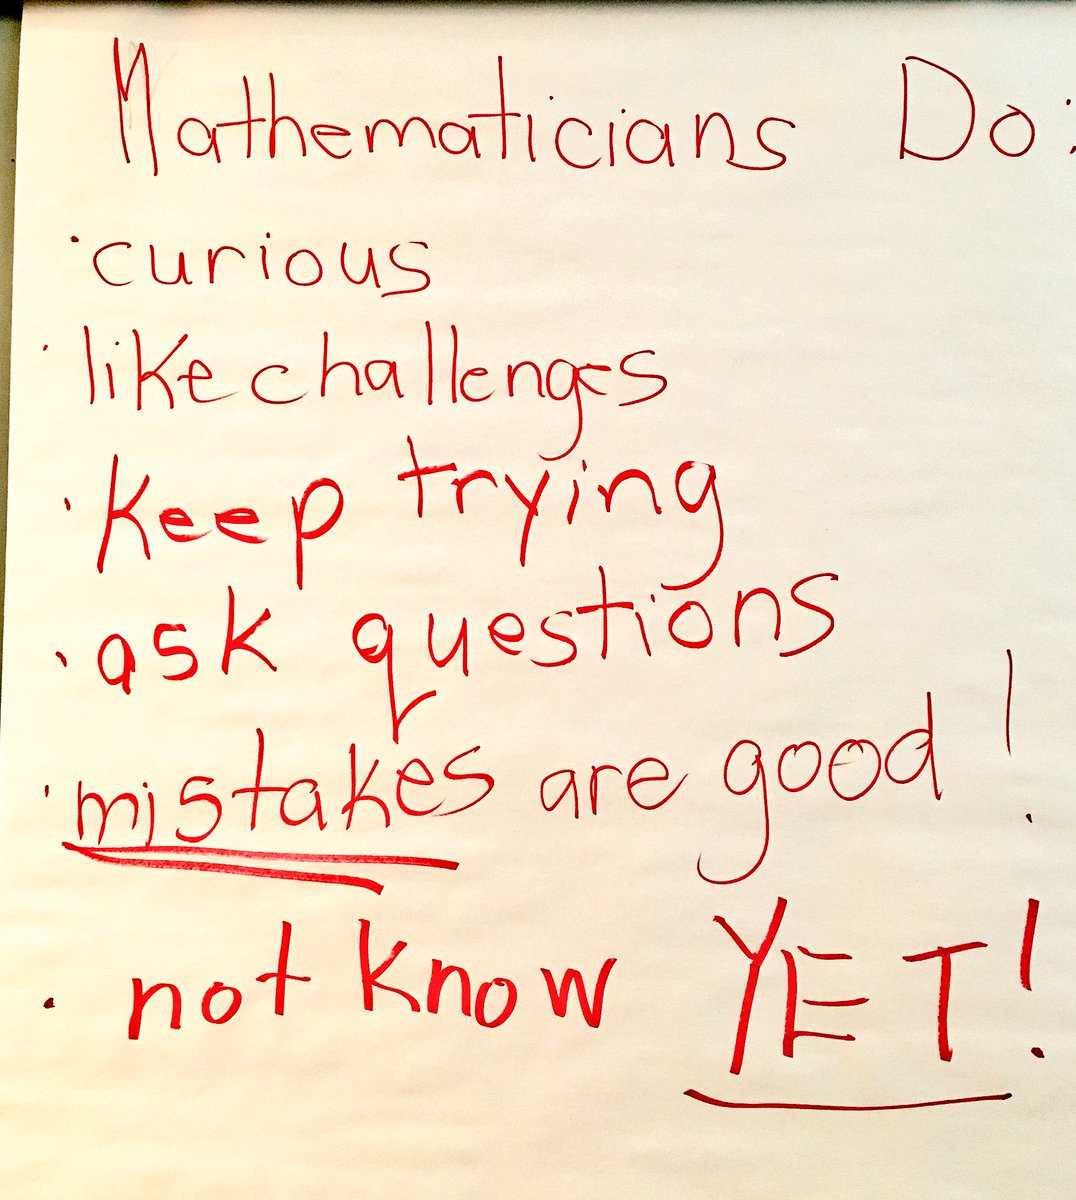 Mathematicians Do:
· curious
· like challenges
· Keep trying
· ask questions
· mistakes are good!
· not know YET!